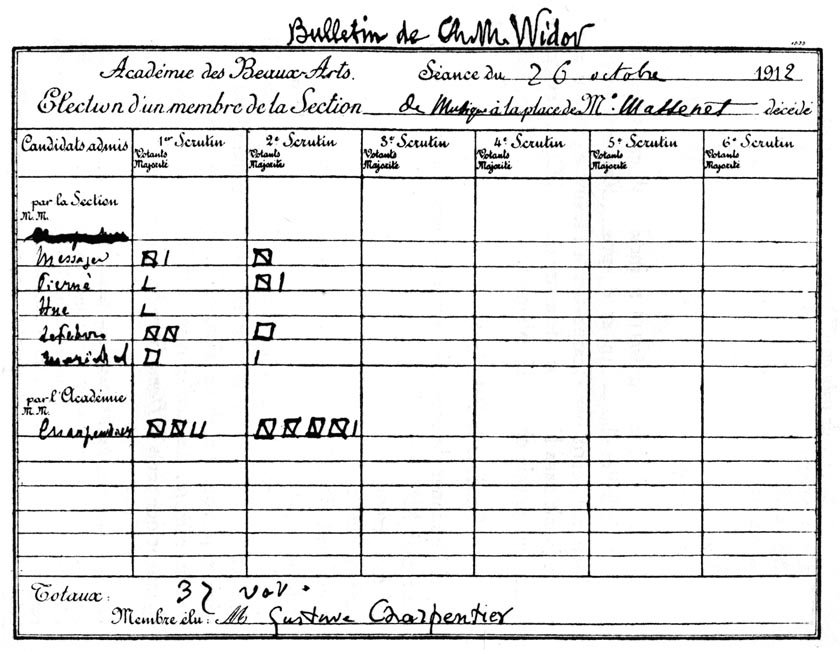 Bulletin de Ch. M. Widor
Académie des Beaux-Arts. Séance du 26 octobre 1912
Election d'un membre de la Section de Musique à la place de M. Massenet décédé
Candidats admis 1er Scrutin 2e Scrutin 3e Scrutin 4e Scrutin 5e Scrutin 6e Scrutin
Votants Votants Votants Votants Votants Votants
Majorité Majorité Majorité Majorité Majorité Majorité
par la Section
M.M.
Messager
Pierné
Hue
Lefebvre
Maréchal
par l'Académie
M.M.
Charpentier
Totaux: 37
Membre élu: M Gustave Charpentier